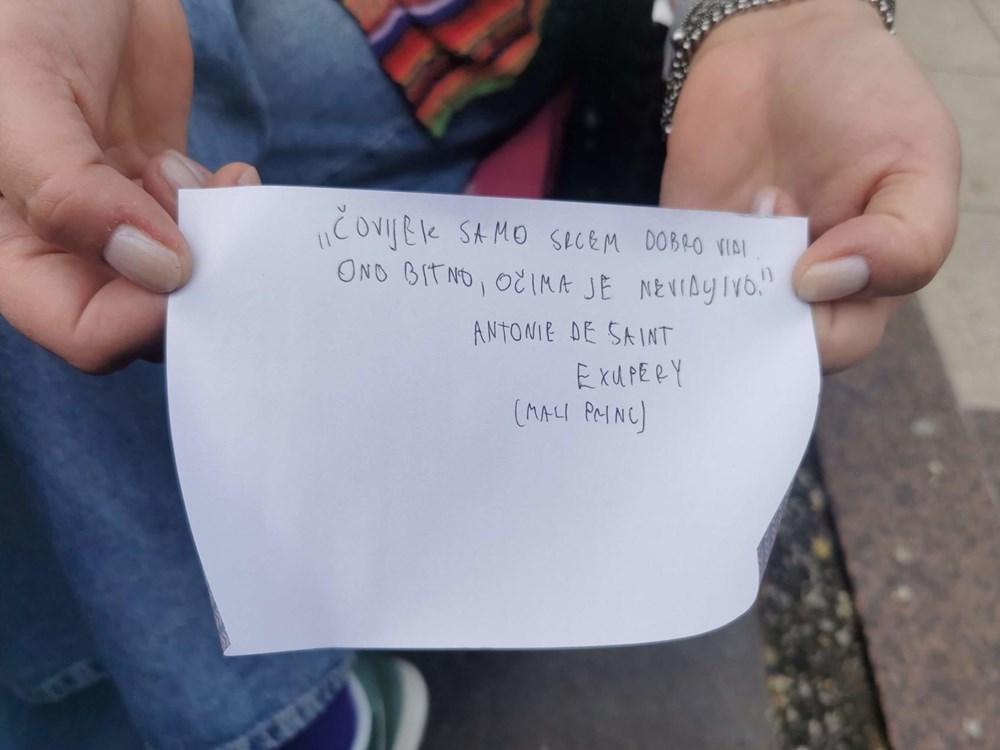 „ČOVIJEK SAMO SRCEM DOBRO VIDI.
ONO BITNO, OČIMA JE NEVIDLJIVO."
ANTONIE DE SAINT
EXUPERY
(MALI PRINC)